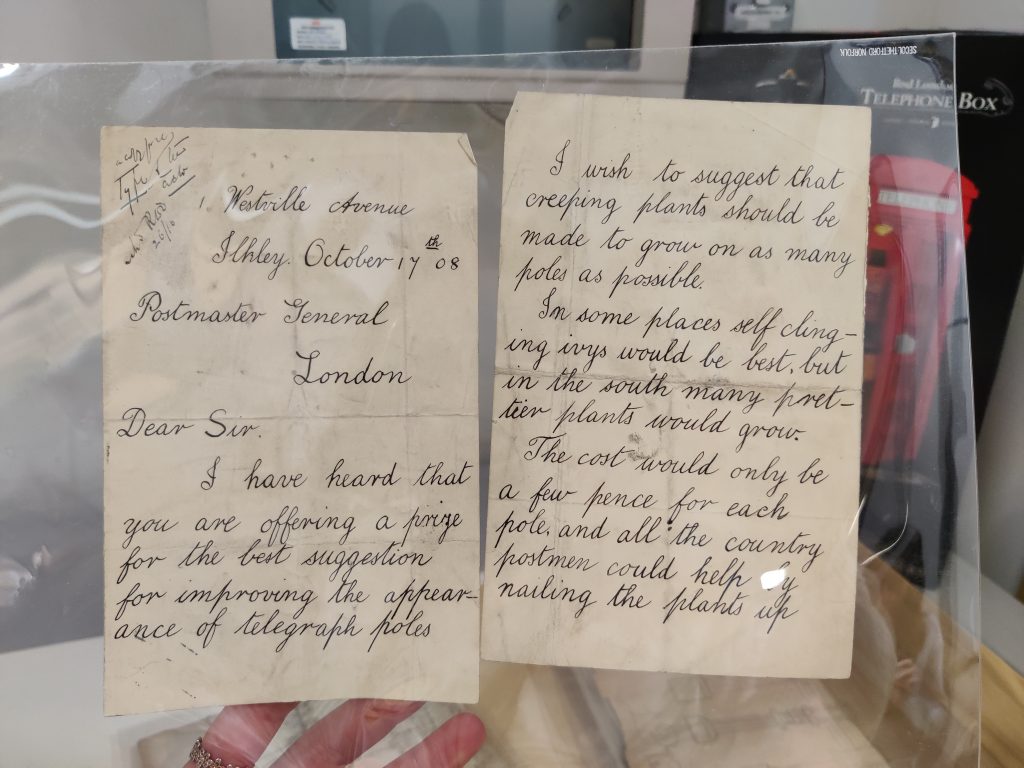 Type & file
26/10
1 Westville Avenue
Ilkley. October 17th 08
Postmaster General
London
Dear Sir.
I have heard that
you are offering a prize
for the best suggestion
for improving the appear-
ance of telegraph poles
I wish to suggest that
creeping plants should be
made to grow on as many
poles as possible.
In some places self cling-
ing ivys would be best, but
in the south many pret-
tier plants would grow.
The cost would only be
a few pence for each
pole, and all the country
postmen could help by
nailing the plants up
SECOL THETFORD NORFOLK
Red London
TELEPHONE BOX
TELEPHONE